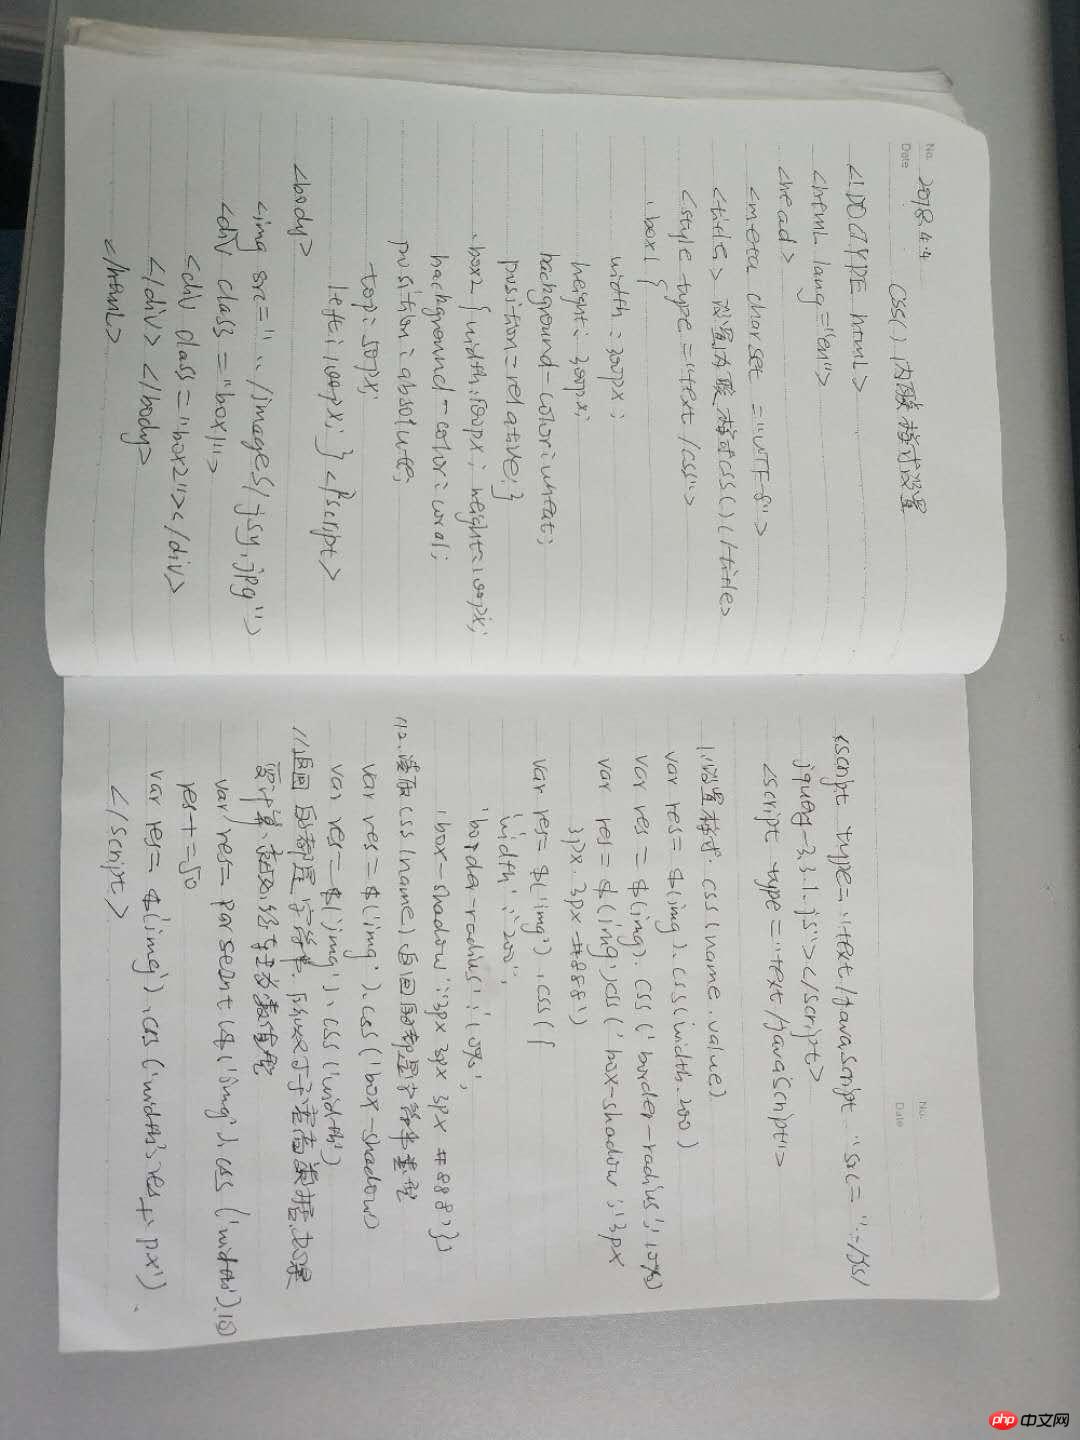 No.
Date
2018.4.4
css() 内联样式设置
<!DOCTYPE html>
<html lang="en">
<head>
<meta charset="UTF-8">
<title>设置内联样式css()</title>
<style type="text/css">
.box1 {
width:300px;
height:300px;
background-color:wheat;
position=relative;}
.box2 {width:100px; height:100px;
background-color:coral;
position:absolute;
top:50px;
left:100px; } </script>
<body>
<img src="../images/jsy.jpg">
<div class="box1">
<div class="box2"></div>
</div></body>
</html>
No.
Date
<script type="text/javascript" src="../js/
jquery-3.3.1.js"></script>
<script type="text/javascript">
1.设置样式.css(name.value)
var res=$(img).css(width.200)
var res=$(img).css('border-radius','10%)
var res=$(img').css('box-shadow','3px
3px.3px #888')
var res=$('img').css({
'width':'200',
'border-radius':'10%',
'box-shadow':'3px 3px 3px #888'})
css(name)返回的都是字符串类型
var res=$('img').css('box-shadow)
var res=$('img').css('width')
//返回的都是字符串.所以对于宽高数据,如果
要计算.转为数值型
var res=parseInt($('img').css('width').10)
res+=50
var res=$(img').css('width',res+'px').
</script>
php 中文网